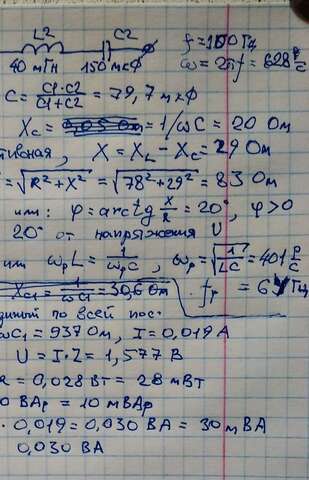 L2 C2 f=100Гц
40 мГн 150 мкФ ω=2πf=628 р/с
C = C1·C2/C1+C2 = 79,7 мкФ
Xc = 1/ωC = 20 Ом
тивная, X = XL - Xc = 29 Ом
= √R²+X² = √78²+29² = 83 Ом
или: φ = arctg X/R = 20°, φ>0
20° от напряжения U
или ωpL = 1/ωpC, ωp = √1/LC = 401 р/с
XC1 = 1/ωC1 = 30,6 Ом fp = 64 Гц
по всей пос.
ωC1 = 937 Ом, I = 0,019 А
U = I·Z = 1,577 В
= 0,028 Вт = 28 мВт
0 ВАр = 10 мВАр
· 0,019 = 0,030 ВА = 30 мВА
0,030 ВА